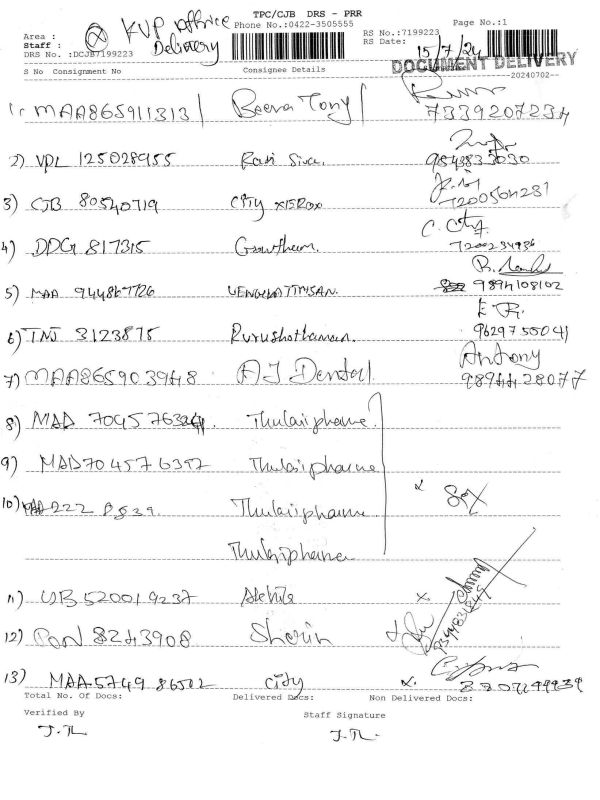 TPC/CJB DRS - PRR
Phone No.:0422-3505555 Page No.:1
Area : KVP office
Staff : Delivery
DRS No. :DCJB7199223
RS No.:7199223
RS Date: 15/7/24
DOCUMENT DELIVERY
S No Consignment No Consignee Details 20240702
1. MAA865911313 Beena Tony
7339207234
2) VPL 125028955 Ravi Siva. 9543833030
3) CJB 80540719 City xerox 7200504231
4) DDG 817315 Gowtham. C. City 7200234936
5) MAA 944867726 VENGKATTHISAN. 9894108102
6) TNJ 3123875 Purushothaman. 9629755041
7) MAA865903948 AJ Dental Antony
9894428077
8) MAD Thulasipharma
9) MAD704576352 Thulasipharma
10) Thulasipharma
Thulasipharma
11) 520019237
12) PON 8243908 Sherin
13) MAA 5749 86502 City
Total No. Of Docs: Delivered Docs: Non Delivered Docs:
Verified By Staff Signature